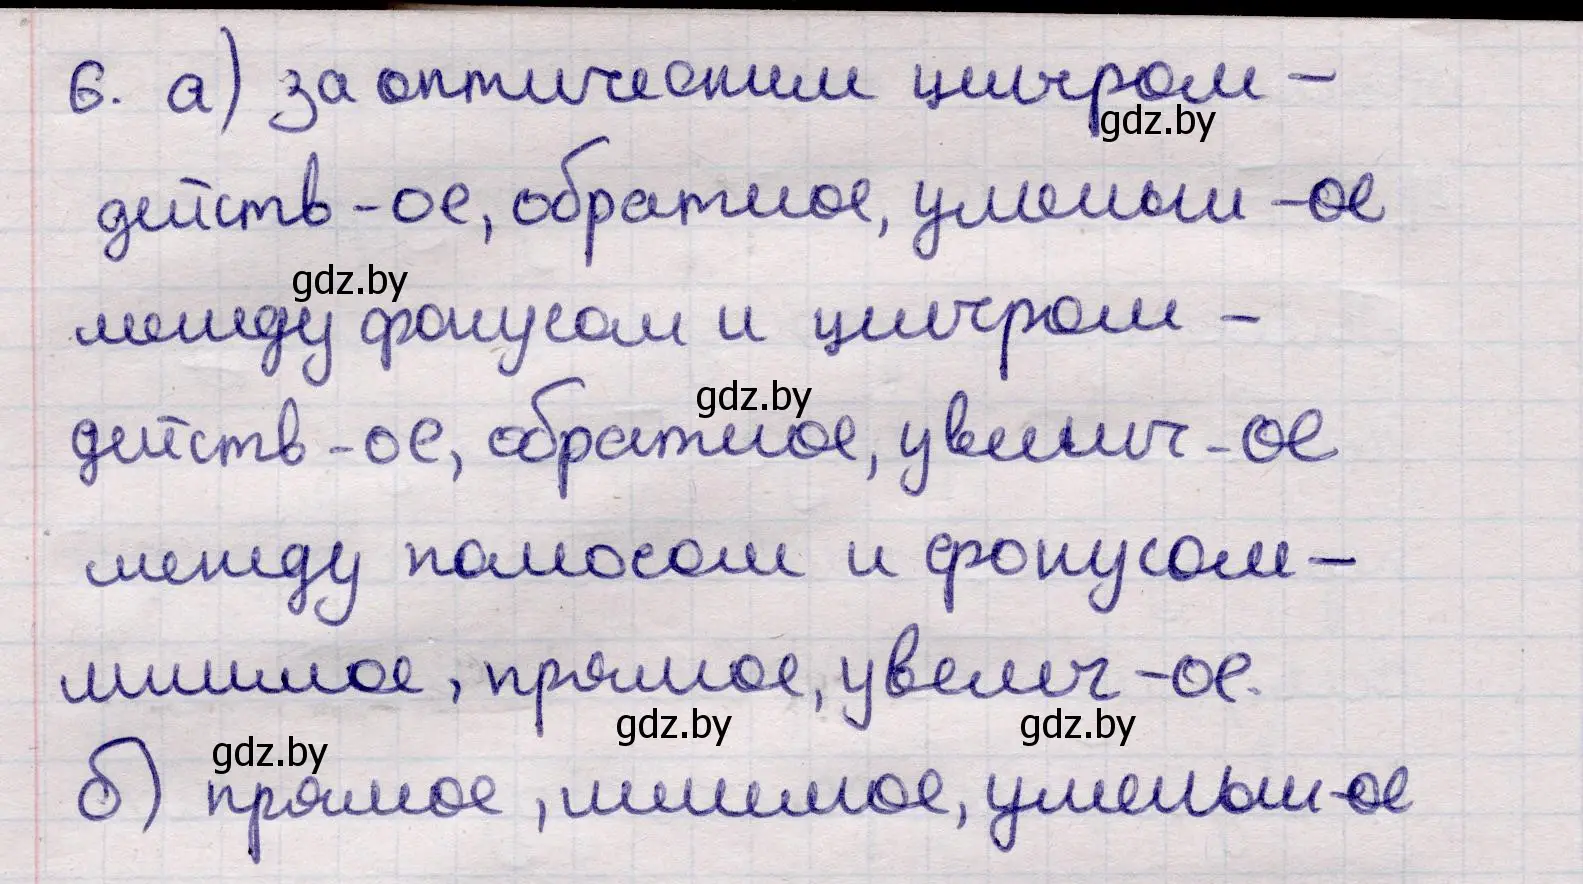 6. а) за оптическим центром –
gdz.by
действ-ое, обратное, уменьш-ое
gdz.by
между фокусом и центром –
gdz.by
действ-ое, обратное, увелич-ое
между полюсом и фокусом –
мнимое, прямое, увелич-ое.
gdz.by gdz.by
gdz.by
б) прямое, мнимое, уменьш-ое